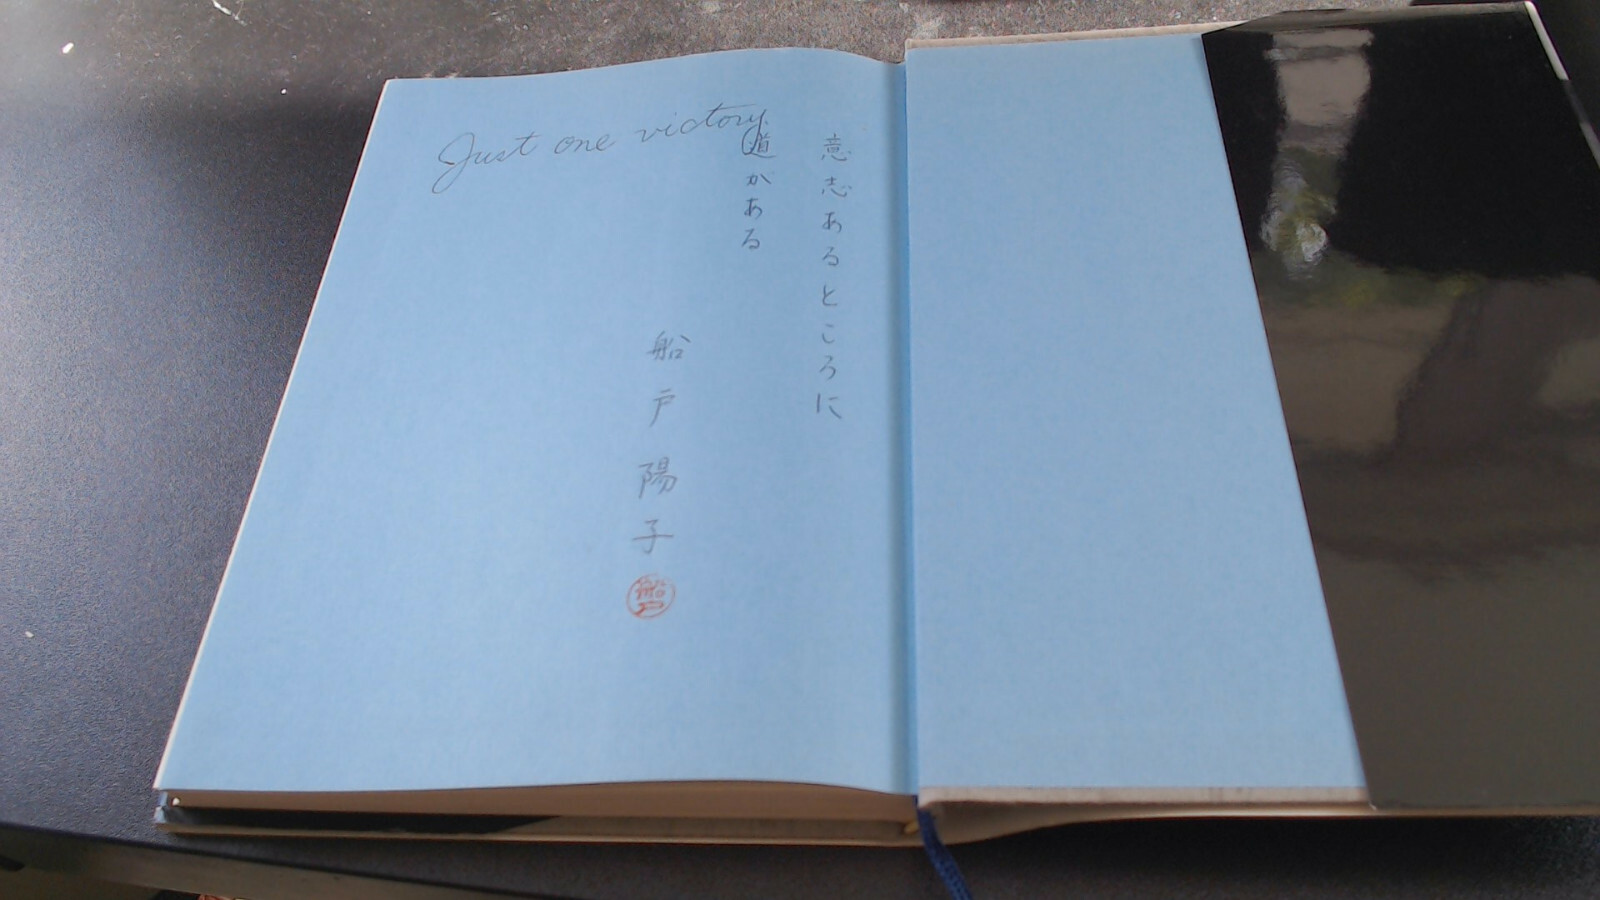 Just one victory
意志あるところに
道がある
船戸陽子
船戸